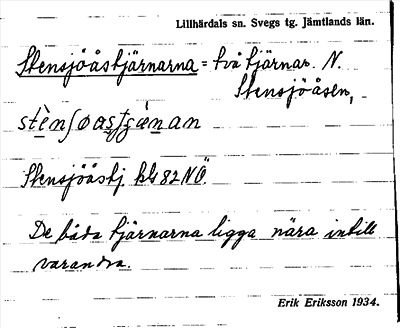 Lillhärdals sn. Svegs tg. Jämtlands län.
Stensjöåstjärnarna = två tjärnar N.
Stensjöåsen,
Stensjöåstj. bl. 82 NÖ.
De båda tjärnarna ligga nära intill
varandra.
Erik Eriksson 1934.